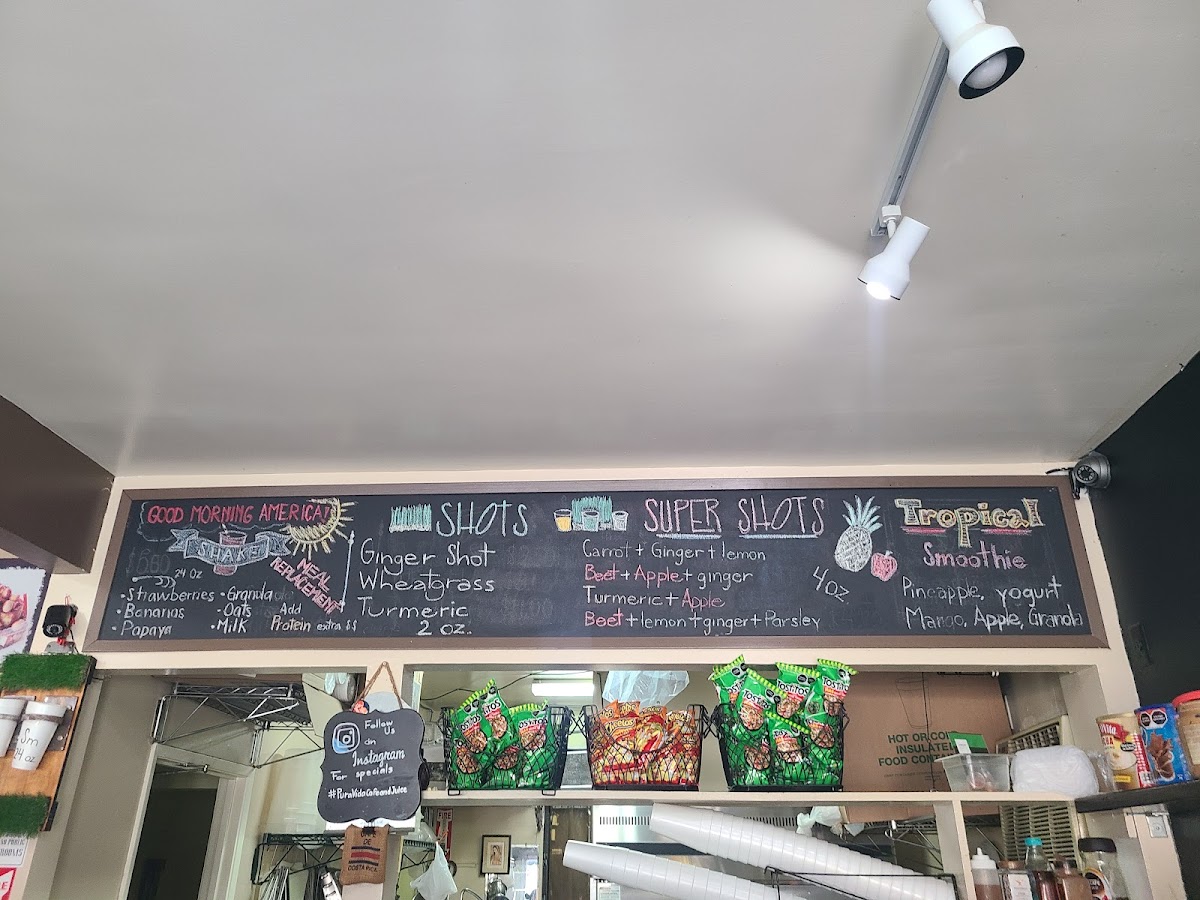 GOOD MORNING AMERICA!
SHAKE
24 OZ
• Strawberries
• Bananas
• Papaya
• Granola
• Oats
• Milk
Add
Protein extra $$
MEAL
REPLACEMENT
SHOTS
Ginger Shot
Wheatgrass
Turmeric
2 oz.
SUPER SHOTS
Carrot + Ginger + lemon
Beet + Apple + ginger
Turmeric + Apple
Beet + lemon + ginger + Parsley
4 oz.
Tropical
Smoothie
Pineapple, yogurt
Mango, Apple, Granola
Follow
Us
on
Instagram
For specials
#PuraVidaCafeandJuice
TOSTITOS
HOT OR COLD
INSULATED
FOOD CONTAINERS
Sm
24 oz
DE
COSTA RICA